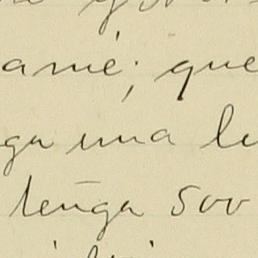 amé; que
ga una le
tenga 500